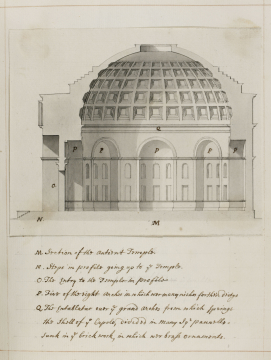 Q
P P P P P
O
N
M
M. Section of the Antient Temple.
N. Steps in profile going up to ye Temple.
O. The Entry to the Temple in profile.
P. Five of the eight Arches in which were many niches for their
Q. The Entablature over ye grand Arches from which springs
the Shell of ye Cupola, divided in many Sqr pannells.
Sunk in ye brick work, in which were brass ornaments.